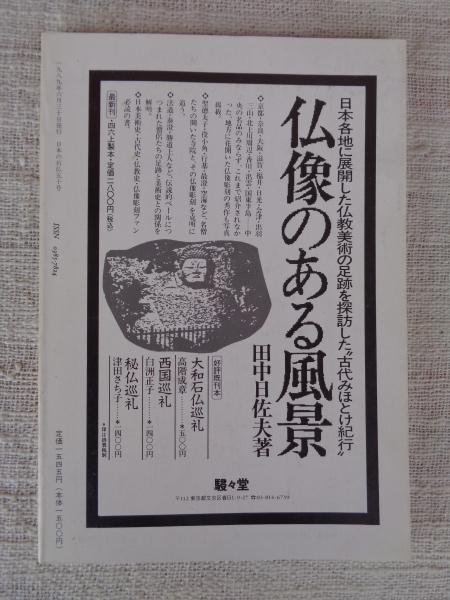 日本各地に展開した仏教美術の足跡を探訪した“古代みほとけ紀行”
仏像のある風景
田中日佐夫著
●京都・奈良・大阪・滋賀・福井・日光・会津・出羽
三山・北上川周辺・香川・出雲・国東半島……中
央の名品のみならず、これまで紹介されなか
った、地方に花開いた仏像彫刻の秀作も写真
掲載。
●聖徳太子・役小角・行基・最澄・空海など、名僧
たちの開いた寺院と、その仏像彫刻を克明に
追う。
●法道・泰澄・勝道上人など、伝説的ベールにつ
つまれた僧侶たちの足跡と美術史との関係を
解明。
●日本美術史・古代史・仏教史・仏像彫刻ファン
必読の書。
最新刊・四六上製本・定価一八〇〇円(税込)
好評既刊本
大和石仏巡礼
高階成章………*一五〇〇円
西国巡礼
白洲正子………*一四〇〇円
秘仏巡礼
津田さち子……*一四〇〇円
駸々堂
〒112 東京都文京区春日1-9-27 ☎03-814-6759
一九八九年六月三十日発行 日本の石仏五十号
ISSN 0387-7824
定価一五四五円〈本体一五〇〇円〉